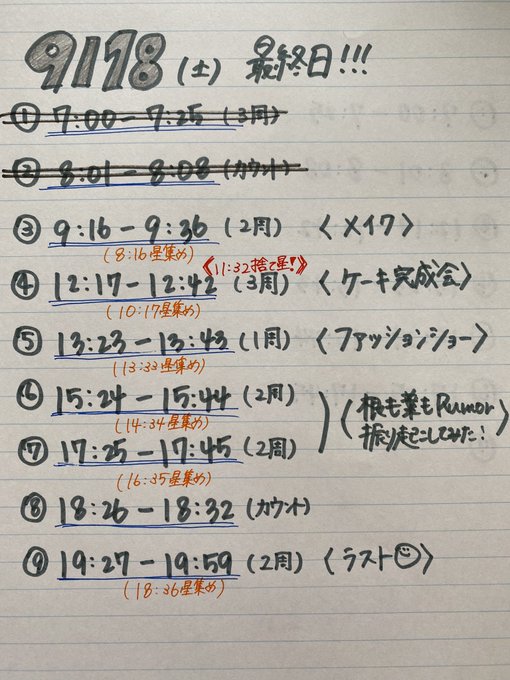 9/18 (土) 最終日!!!
① 7:00-7:25 (3周)
② 8:01-8:08 (カウント)
③ 9:16-9:36 (2周) 〈メイク〉
(8:16星集め)
《11:32捨て星!》
④ 12:17-12:42 (3周) 〈ケーキ完成会〉
(10:17星集め)
⑤ 13:23-13:43 (1周) 〈ファッションショー〉
(13:33星集め)
⑥ 15:24-15:44 (2周)
(14:34星集め)
〈根も葉もRumor
振り起こしてみた!〉
⑦ 17:25-17:45 (2周)
(16:35星集め)
⑧ 18:26-18:32 (カウント)
⑨ 19:27-19:59 (2周) 〈ラスト☺〉
(18:36星集め)